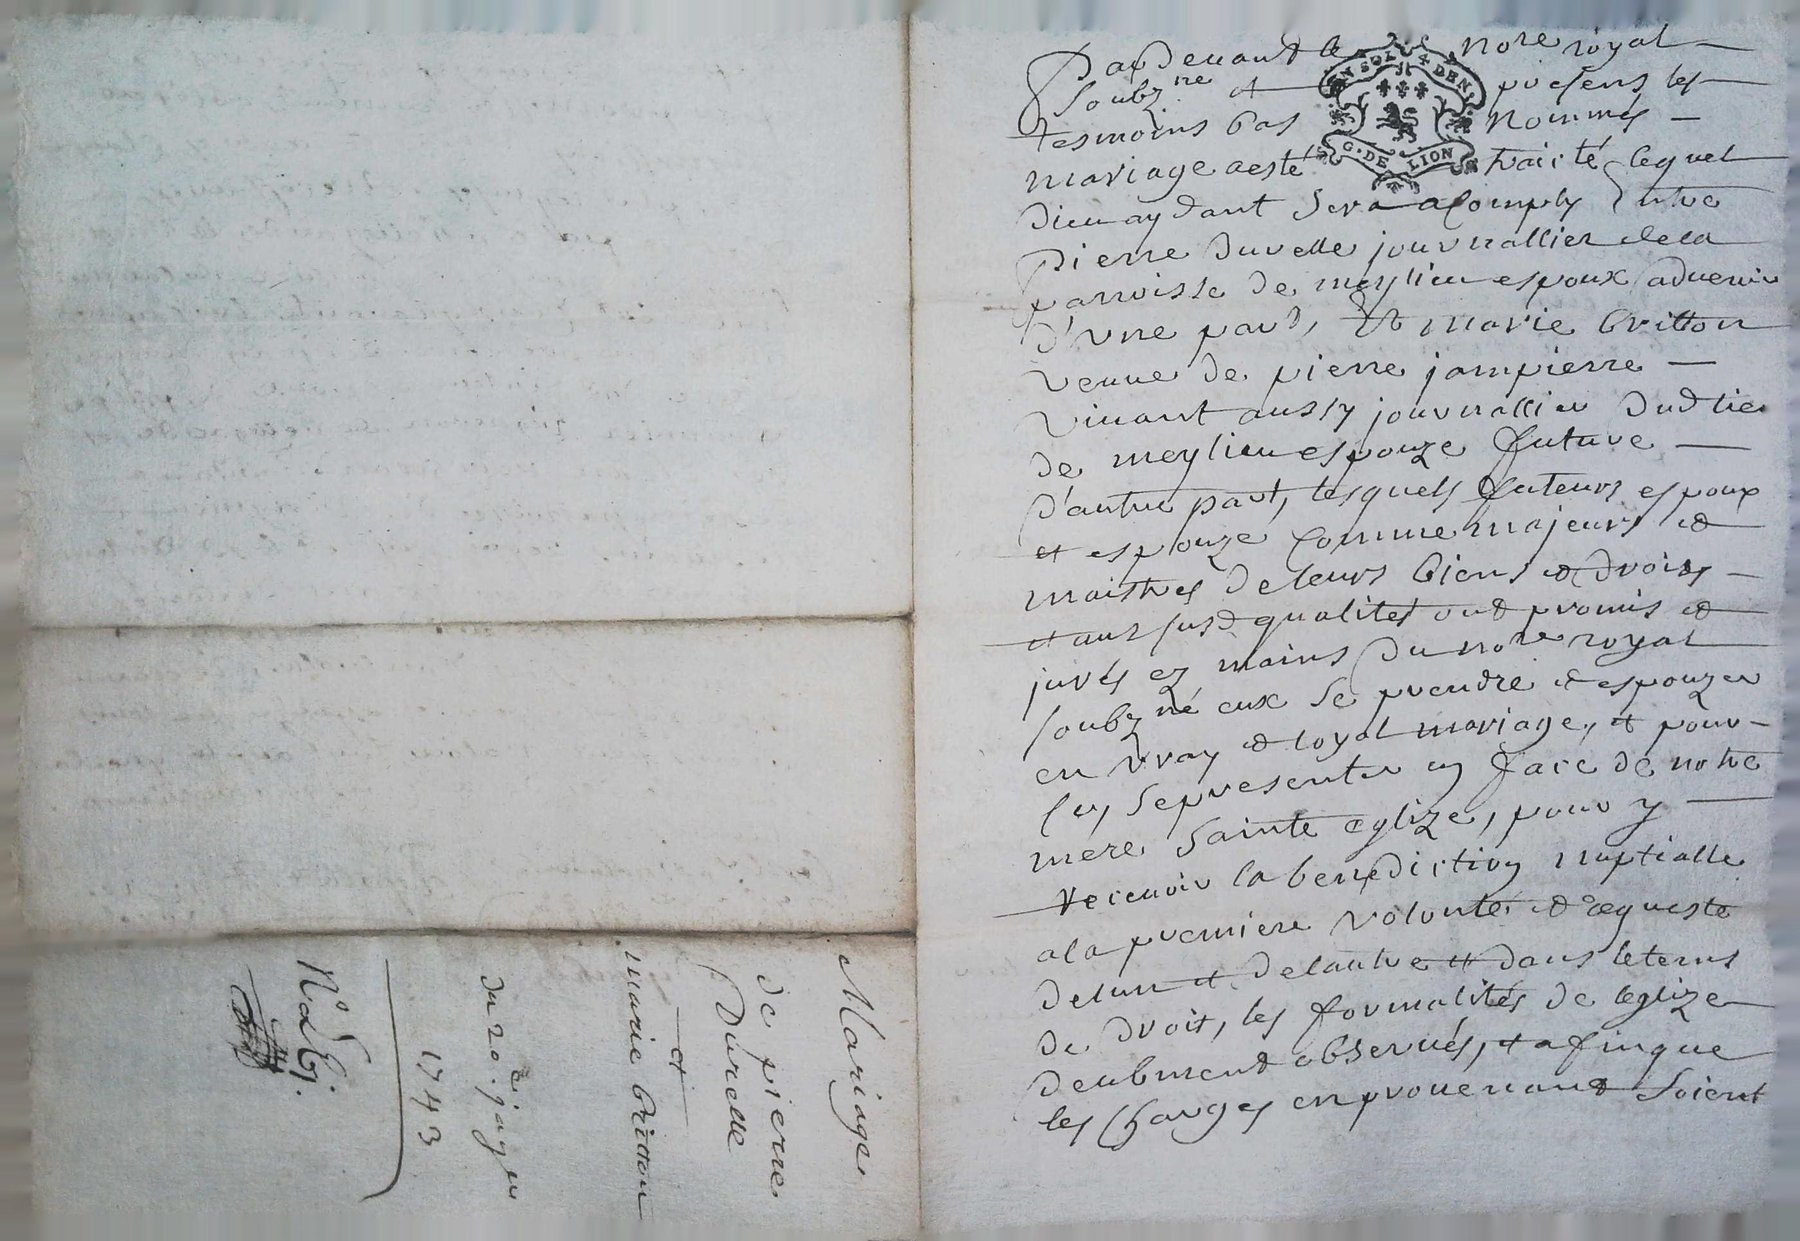 Mariage
de pierre
Durelle
et
marie britton
du 20e janer
1743
Pardevant le nore royal
soubzne et presens les
tesmoins bas nommés
mariage aesté traicté lequel
dieu aydant sera acomply Entre
pierre durelle journallier dela
parroisse de meylieu espoux advenir
d'une part, Et marie britton
veuve de pierre jampierre
vivant aussy journallier dud lieu
de meylieu espouze future
d'autre part, lesquels futeurs espoux
et espouze comme majeurs et
maistres de leurs biens et droits
et aux susd qualites ont promis et
jurés ez mains du nore royal
soubzné eux se prendre et espouzer
en vray et loyal mariage, et pour
ce, se presenter en face de notre
mere sainte eglize, pour y
recevoir la benediction nuptialle
ala premiere volonté et requeste
delun et delautre et dans letems
de droit, les formalités de leglize
deubment observés, et afinque
les charges enprouenant soient
EN SOL 4 DEN
G. DE LION